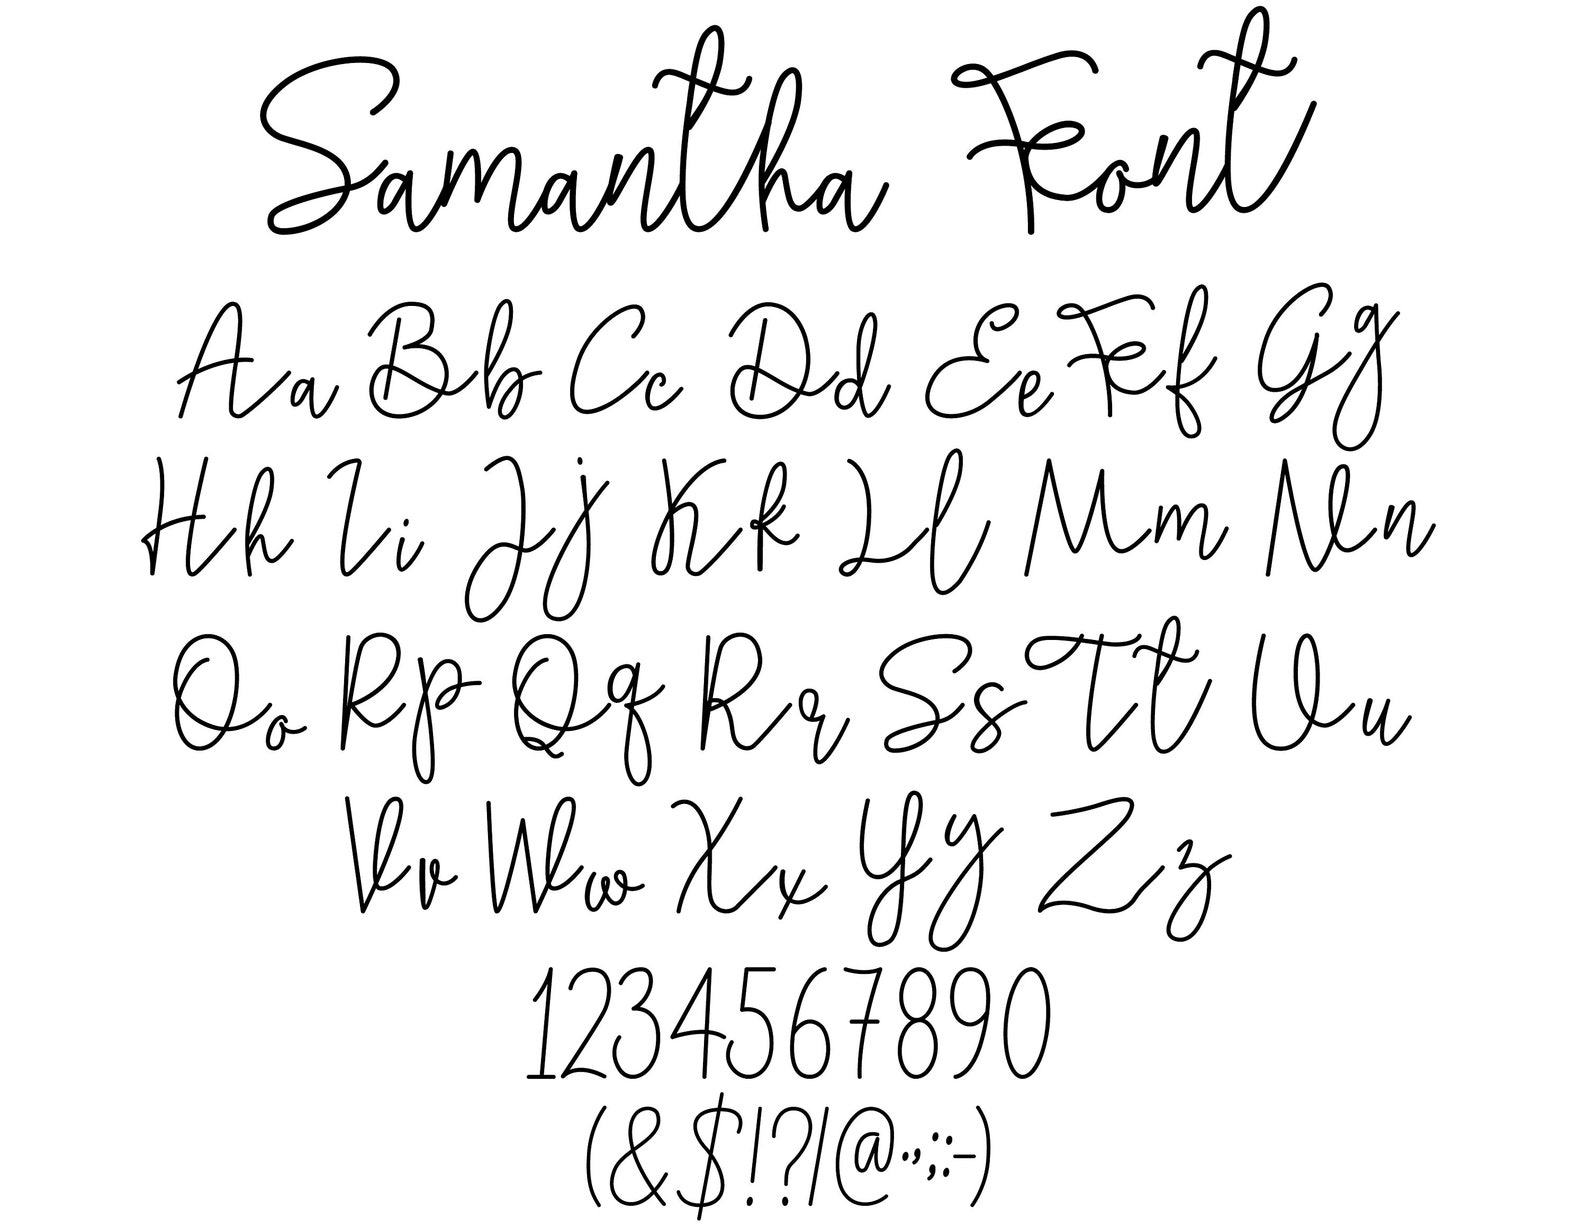 Samantha Font
Aa Bb Cc Dd Ee Ff Gg
Hh Ii Jj Kk Ll Mm Nn
Oo Pp Qq Rr Ss Tt Uu
Vv Ww Xx Yy Zz
1234567890
(&$!?/@.,;:-)